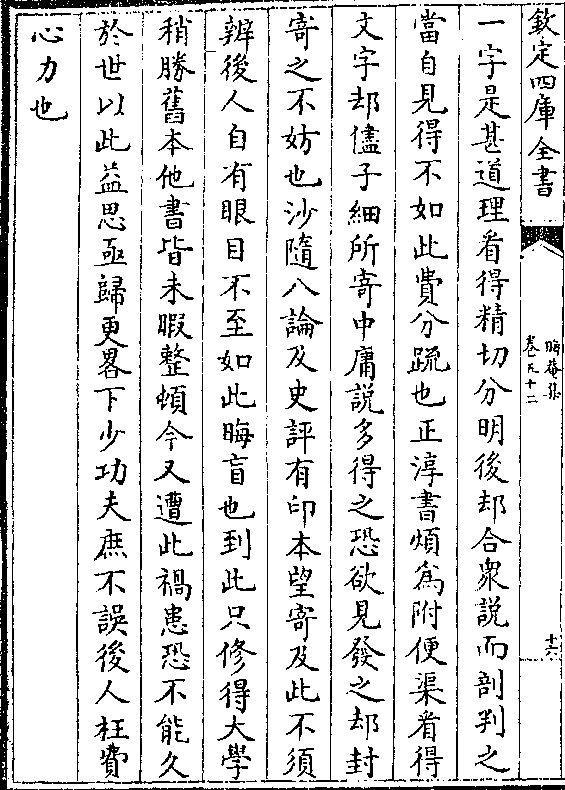 欽定四庫全書
晦菴集
卷五十二
十六
一字是甚道理看得精切分明後却合衆說而剖判之
當自見得不如此費分疏也正淳書煩為附便渠看得
文字却儘子細所寄中庸說多得之恐欲見發之却封
寄之不妨也沙隨八論及史評有印本望寄及此不須
辨後人自有眼目不至如此晦盲也到此只修得大學
稍勝舊本他書皆未暇整頓今又遭此禍患恐不能久
於世以此益思亟歸更畧下少功夫庶不誤後人枉費
心力也